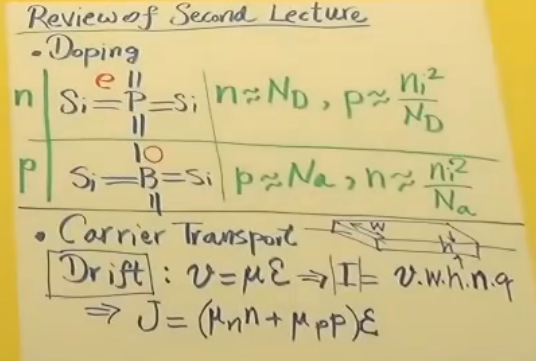 Review of Second Lecture
• Doping
n | Si = P = Si | n ≈ N_D , p ≈ n_i²/N_D
e
p | Si = B = Si | p ≈ N_a , n ≈ n_i²/N_a
• Carrier Transport
w h
Drift : v = μℰ ⇒ |I| = v.w.h.n.q
⇒ J = (μ_n n + μ_p p)ℰ